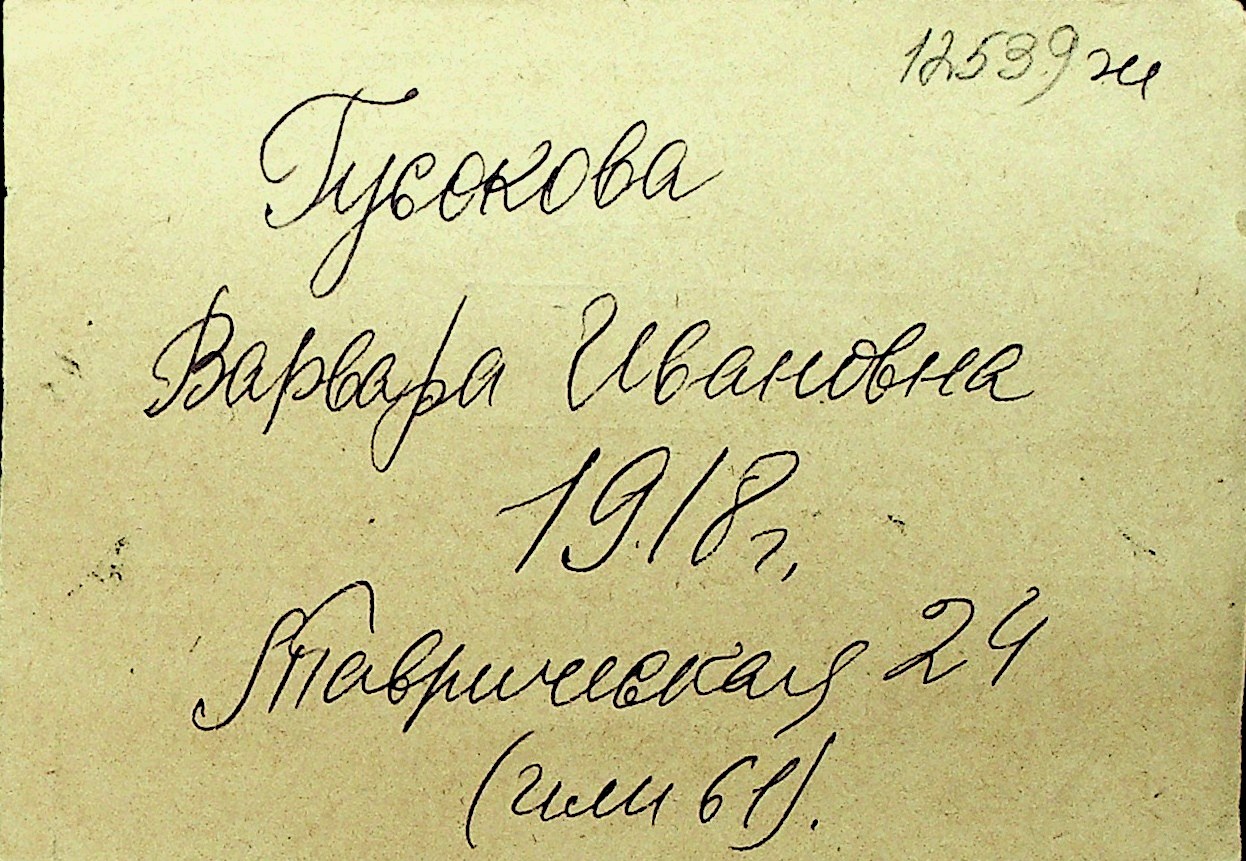 12539ж
Гусокова
Варвара Ивановна
1918г.
Таврическая 24
(или 61).